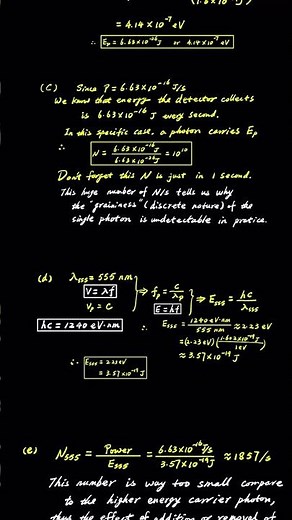 = 4.14×10⁻⁷ eV
∴ Ep = 6.63×10⁻²⁶ J or 4.14×10⁻⁷ eV
(C) Since P = 6.63×10⁻¹⁶ J/s
We know that energy the detector collects
is 6.63×10⁻¹⁶ J every second.
In this specific case, a photon carries Ep
∴ N = 6.63×10⁻¹⁶ / 6.63×10⁻²⁶ = 10¹⁰
Don't forget this N is just in 1 second.
This huge number of N/s tells us why
the "graininess" (discrete nature) of the
single photon is undetectable in pratice.
(d) λ555 = 555 nm
V = λf
Vp = C
⇒ fp = C/λp
E = hf
⇒ E555 = hC/λ555
hC = 1240 eV·nm
∴ E555 = 1240 eV·nm / 555 nm ≈ 2.23 eV
= (2.23 eV)(1.602×10⁻¹⁹ J / 1 eV)
≈ 3.57×10⁻¹⁹ J
∴ E555 = 2.23 eV
= 3.57×10⁻¹⁹ J
(e) N555 = Power / E555 = 6.63×10⁻¹⁶ J/s / 3.57×10⁻¹⁹ J ≈ 1857/s
This number is way too small compare
to the higher energy carrier photon,
thus the effect of addition or removal of